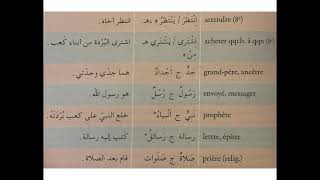 attendre (8ᵉ) اِنْتَظَرَ / يَنْتَظِرُ ه، هـ انتظر أخاه.
acheter qqch. à qqn (8ᵉ) اِشْتَرَى / يَشْتَرِي هـ مِنْ ه اشترى البُرْدة من أبناء كعب.
grand-père, ancêtre جَدٌّ ج أَجْدَادٌ هما جدّي وجدّتي.
envoyé, messager رَسُولٌ ج رُسُلٌ هو رسول الله.
prophète نَبِيٌّ ج أَنْبِيَاءُ خلع النبيّ على كعب بُرْدَتَهُ.
lettre, épître رِسَالَة ج رَسَائِلُ كتب إليه رسالة.
prière (relig.) صَلَاةٌ ج صَلَوَات قام بعد الصلاة.